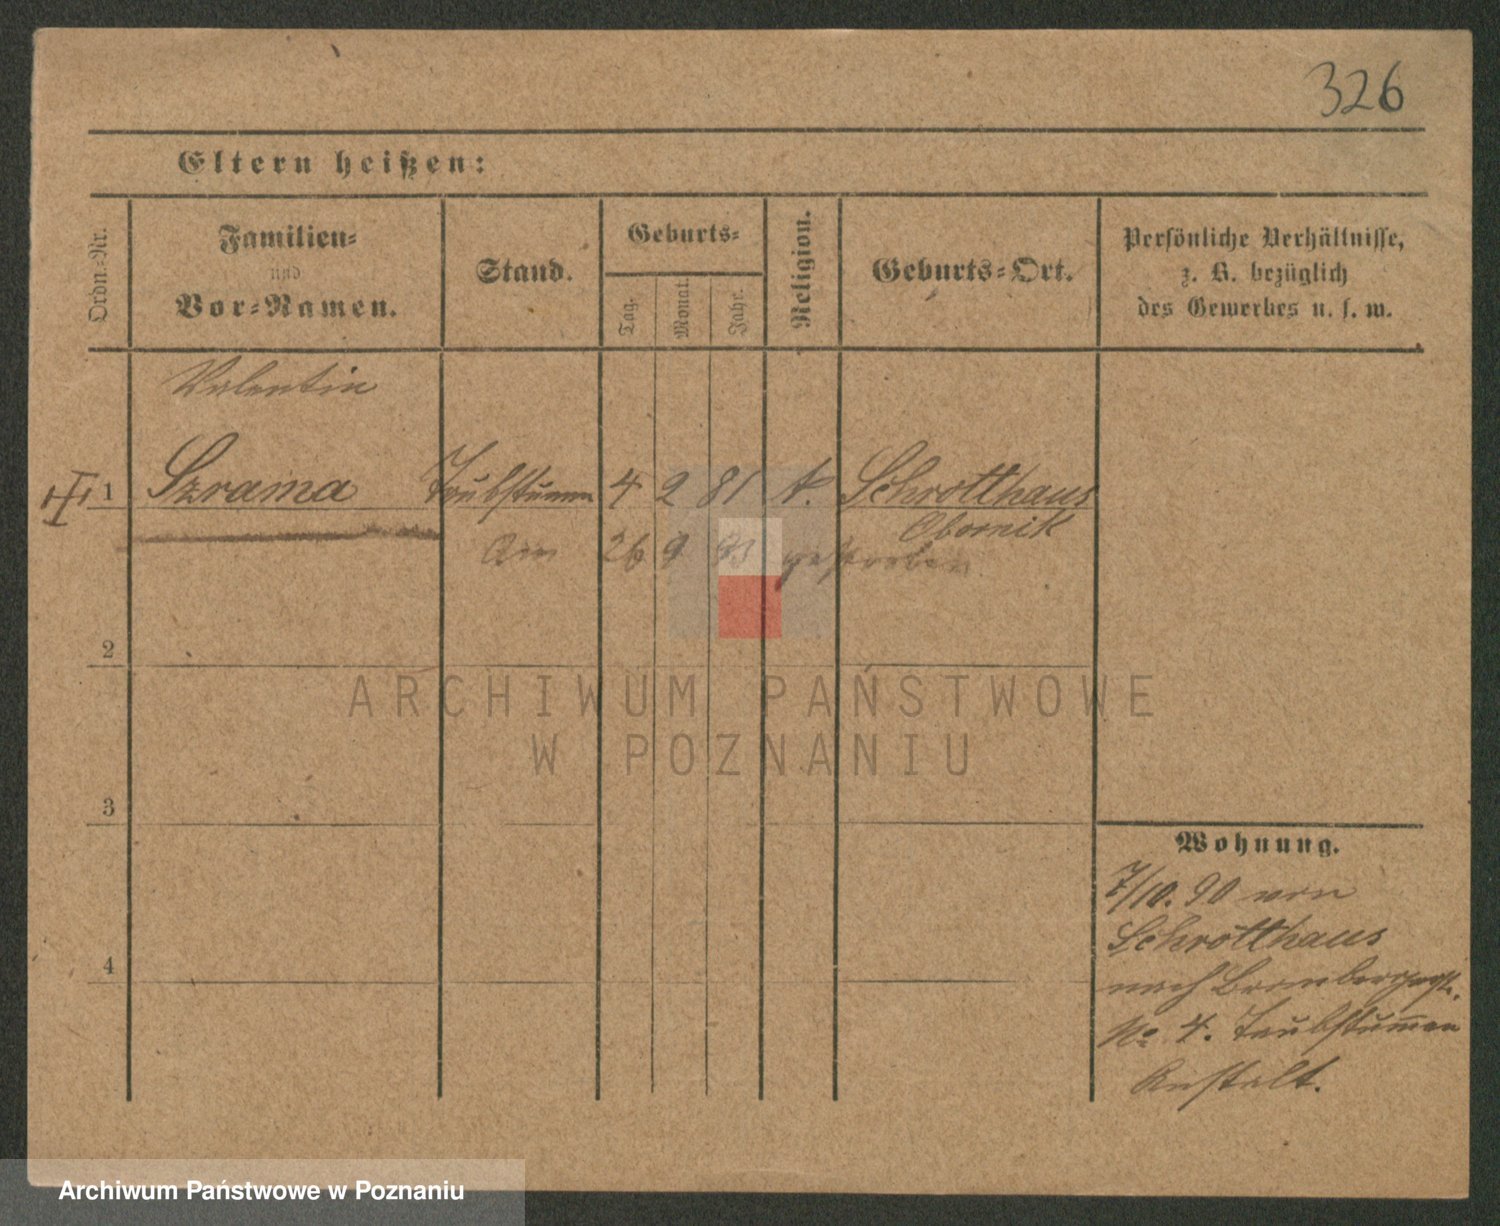 326
Eltern heißen:
Ordn.-Nr.
Familien-
und
Vor-Namen.
Stand.
Geburts-
Tag.
Monat.
Jahr.
Religion.
Geburts-Ort.
Persönliche Verhältnisse,
z. B. bezüglich
des Gewerbes u. s. w.
Valentin
1 Szrama Taubstumm 4 2 81 k. Schrotthaus
Obornik
Am 26 9 gestorben
2
3
4
Wohnung.
7/10. 90 von
Schrotthaus
nach
No 4. Taubstummen
Anstalt.
ARCHIWUM PAŃSTWOWE
W POZNANIU
Archiwum Państwowe w Poznaniu